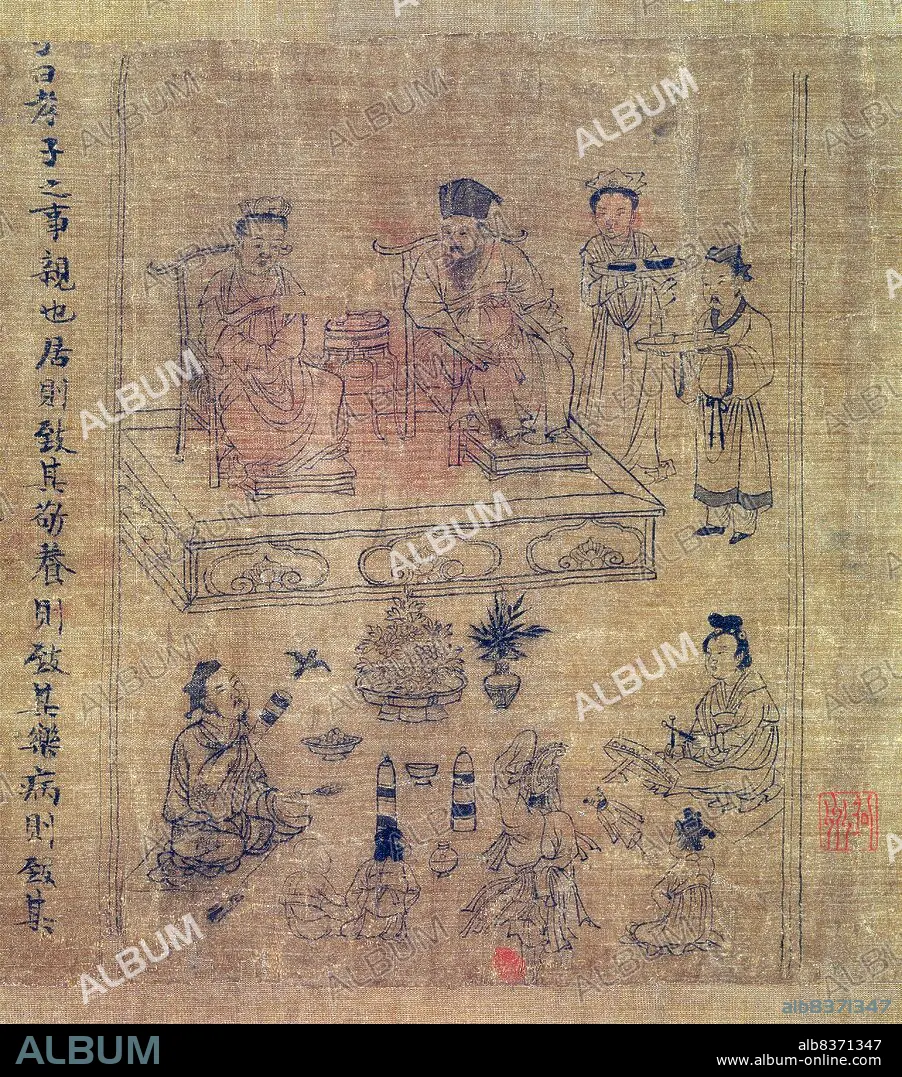 子曰孝子之事親也居則致其敬養則致其樂病則致其
ALBUM
alb8371347
ALBUM
alb8371347
www.album-online.com